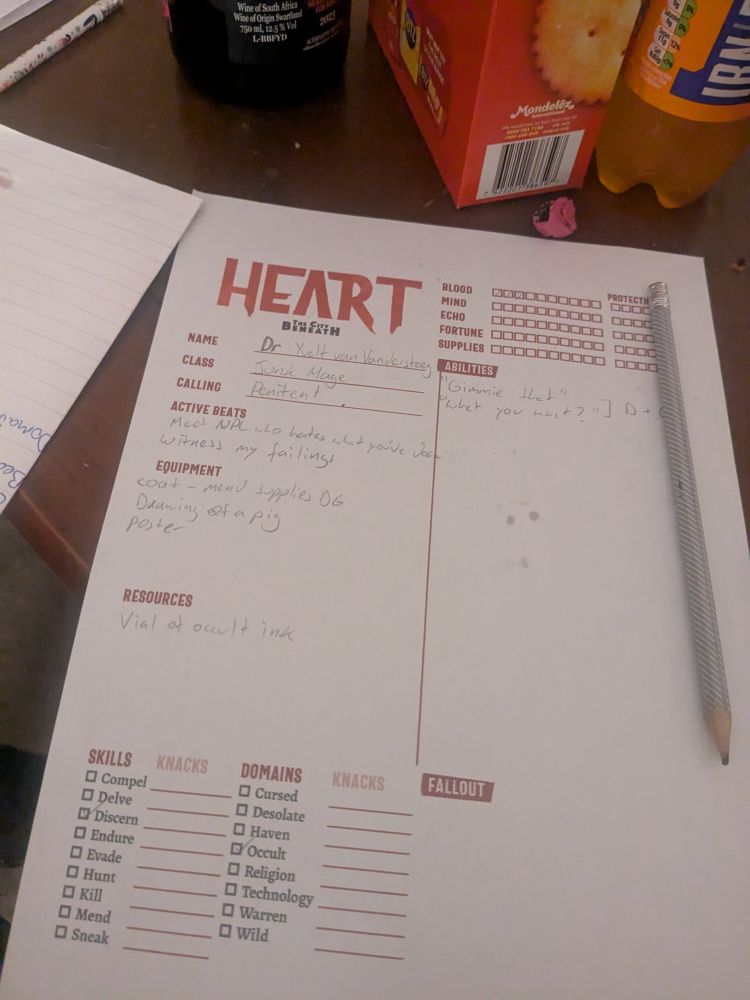 Wine of South Africa
Wine of Origin Swartland
750 ml, 12.5 % Vol
L-BBFYD
2023
Mondelēz
International
IRN
HEART
THE CITY
BENEATH
NAME Dr Yvelt van Vandersteeg
CLASS Junk Mage
CALLING Penitent
ACTIVE BEATS
Meet NPC who hates what you've
witness my failings
EQUIPMENT
coat - mend supplies D6
Drawing of a pig
Poster
RESOURCES
Vial of occult ink
BLOOD
MIND
ECHO
FORTUNE
SUPPLIES
PROTECTI
ABILITIES
"Gimmie that"
"what you want?"] D +
SKILLS KNACKS
Compel
Delve
Discern
Endure
Evade
Hunt
Kill
Mend
Sneak
DOMAINS KNACKS
Cursed
Desolate
Haven
Occult
Religion
Technology
Warren
Wild
FALLOUT
Domai